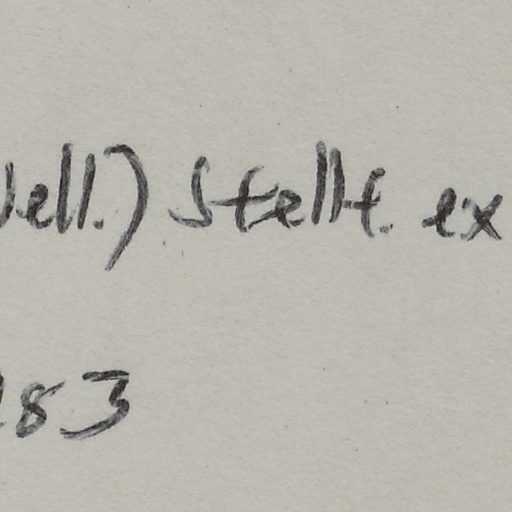 ell.) Stellf. ex
83